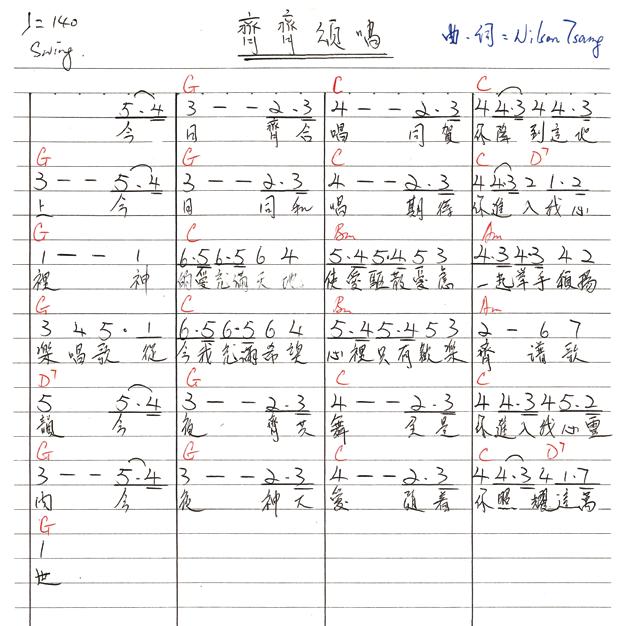 ♩=140
Swing.
齊齊頌唱
曲．詞=Nilson Tsang
G C C
5·4 3 - - 2·3 4 - - 2·3 4 4·3 4 4·3
今 日 齊合 唱 同賀 你降到這地
G G C C D7
3 - - 5·4 3 - - 2·3 4 - - 2·3 4 4·3 2 1·2
上 今 日 同和 唱 期待 你進入我心
G C Bm Am
1 - - 1 6·5 6·5 6 4 5·4 5·4 5 3 4·3 4·3 4 2
裡 神 的愛充滿天地 使愛驅散憂慮 一起舉手頌揚
G C Bm Am
3 4 5· 1 6·5 6·5 6 4 5·4 5·4 5 3 2 - 6 7
樂唱歌 從 今我充滿希望 心裡只有歡樂 齊 譜歌
D7 G C C
5 5·4 3 - - 2·3 4 - - 2·3 4 4·3 4 5·2
韻 今 夜 齊共 舞 又是 你進入我心靈
G G C C D7
3 - - 5·4 3 - - 2·3 4 - - 2·3 4 4·3 4 1·7
內 今 夜 神大 愛 隨着 你照耀這萬
G
1
世